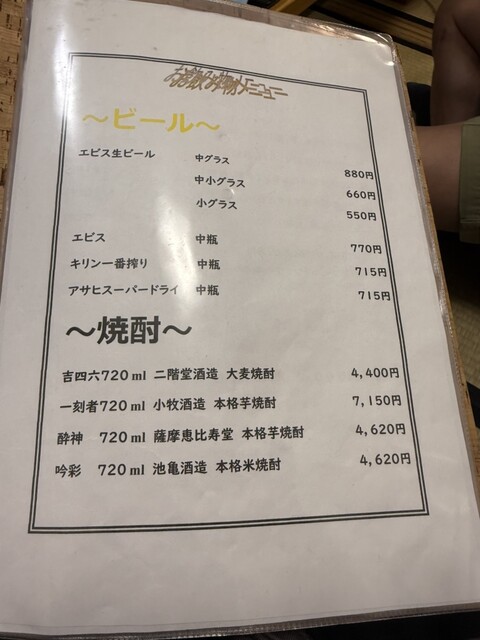 お飲み物メニュー
～ビール～
エビス生ビール 中グラス 880円
中小グラス 660円
小グラス 550円
エビス 中瓶 770円
キリン一番搾り 中瓶 715円
アサヒスーパードライ 中瓶 715円
～焼酎～
吉四六720ml 二階堂酒造 大麦焼酎 4,400円
一刻者720ml 小牧酒造 本格芋焼酎 7,150円
酔神 720ml 薩摩恵比寿堂 本格芋焼酎 4,620円
吟彩 720ml 池亀酒造 本格米焼酎 4,620円